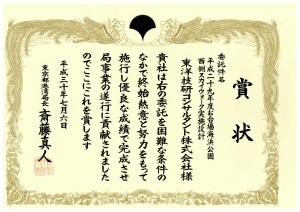 賞状
委託件名
平成二十九年度お台場海浜公園
西側スカイウォーク実施設計
東洋技研コンサルタント株式会社様
貴社は右の委託を困難な条件の
なかで終始熱意と努力をもって
施行し優良な成績で完成させ
局事業の遂行に貢献されました
のでここにこれを賞します
平成三十年七月六日
東京都港湾局長 斎藤真人